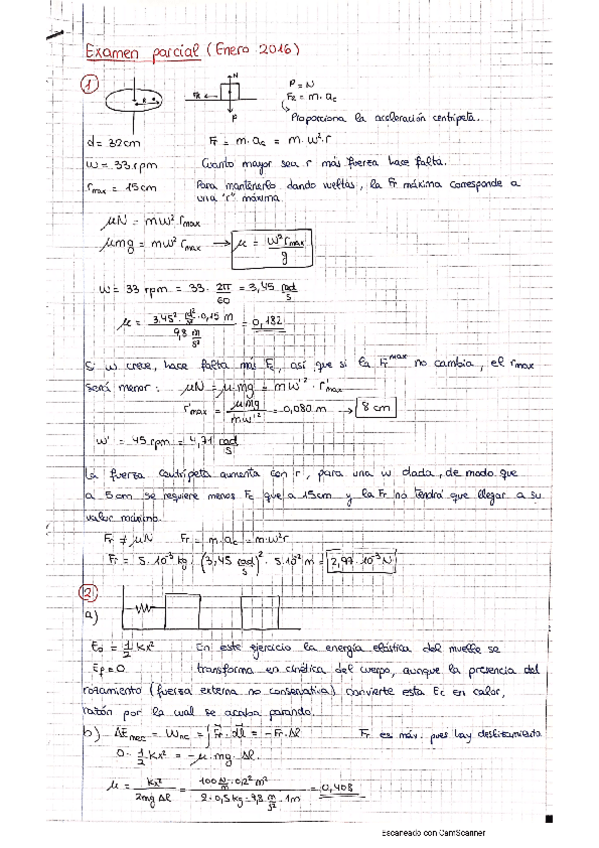 Examen parcial (Enero 2016)
1
N
FR
P
R
P = N
FR = m · ac
Proporciona la aceleración centrípeta.
d = 32 cm
Fr = m · ac = m · w² · r
w = 33 rpm
Cuanto mayor sea r más fuerza hace falta.
rmax = 15 cm
Para mantenerlo dando vueltas, la Fr máxima corresponde a
una "r" máxima.
μN = mw² · rmax
μmg = mw² rmax → μ = w² rmax / g
w = 33 rpm = 33 · 2π/60 = 3,45 rad/s
μ = 3.45² · rad²/s² · 0,15 m / 9,8 m/s² = 0,182
Si w crece, hace falta más Fc, así que si la Fr max no cambia, el rmax
será menor: μN = μmg = mw'² · r'max
r'max = μmg / m·w'² = 0,080 m → 8 cm
w' = 45 rpm = 4,71 rad/s
La fuerza centrípeta aumenta con r, para una w dada, de modo que
a 5cm se requiere menos Fc que a 15cm y la Fr no tendrá que llegar a su
valor máximo.
Fr ≠ μN Fr = m·ac = m·w²r
Fr = 5·10⁻³ kg · (3,45 rad/s)² · 5·10⁻² m = 2,97·10⁻³ N
2
a)
Eo = 1/2 Kx² En este ejercicio la energía elástica del muelle se
Ef = 0 transforma en cinética del cuerpo, aunque la presencia del
rozamiento (fuerza externa no conservativa) convierte esta Ec en calor,
razón por la cual se acaba parando.
b) ΔEmec = Wnc = ∫ Fr · dl = -Fr · Δl Fr es máx. pues hay deslizamiento
0 - 1/2 Kx² = -μ · mg · Δl.
μ = Kx² / 2mg Δl = 100 N/m · 0,2² m² / 2 · 0,5 kg · 9,8 m/s² · 1m = 0,408
Escaneado con CamScanner